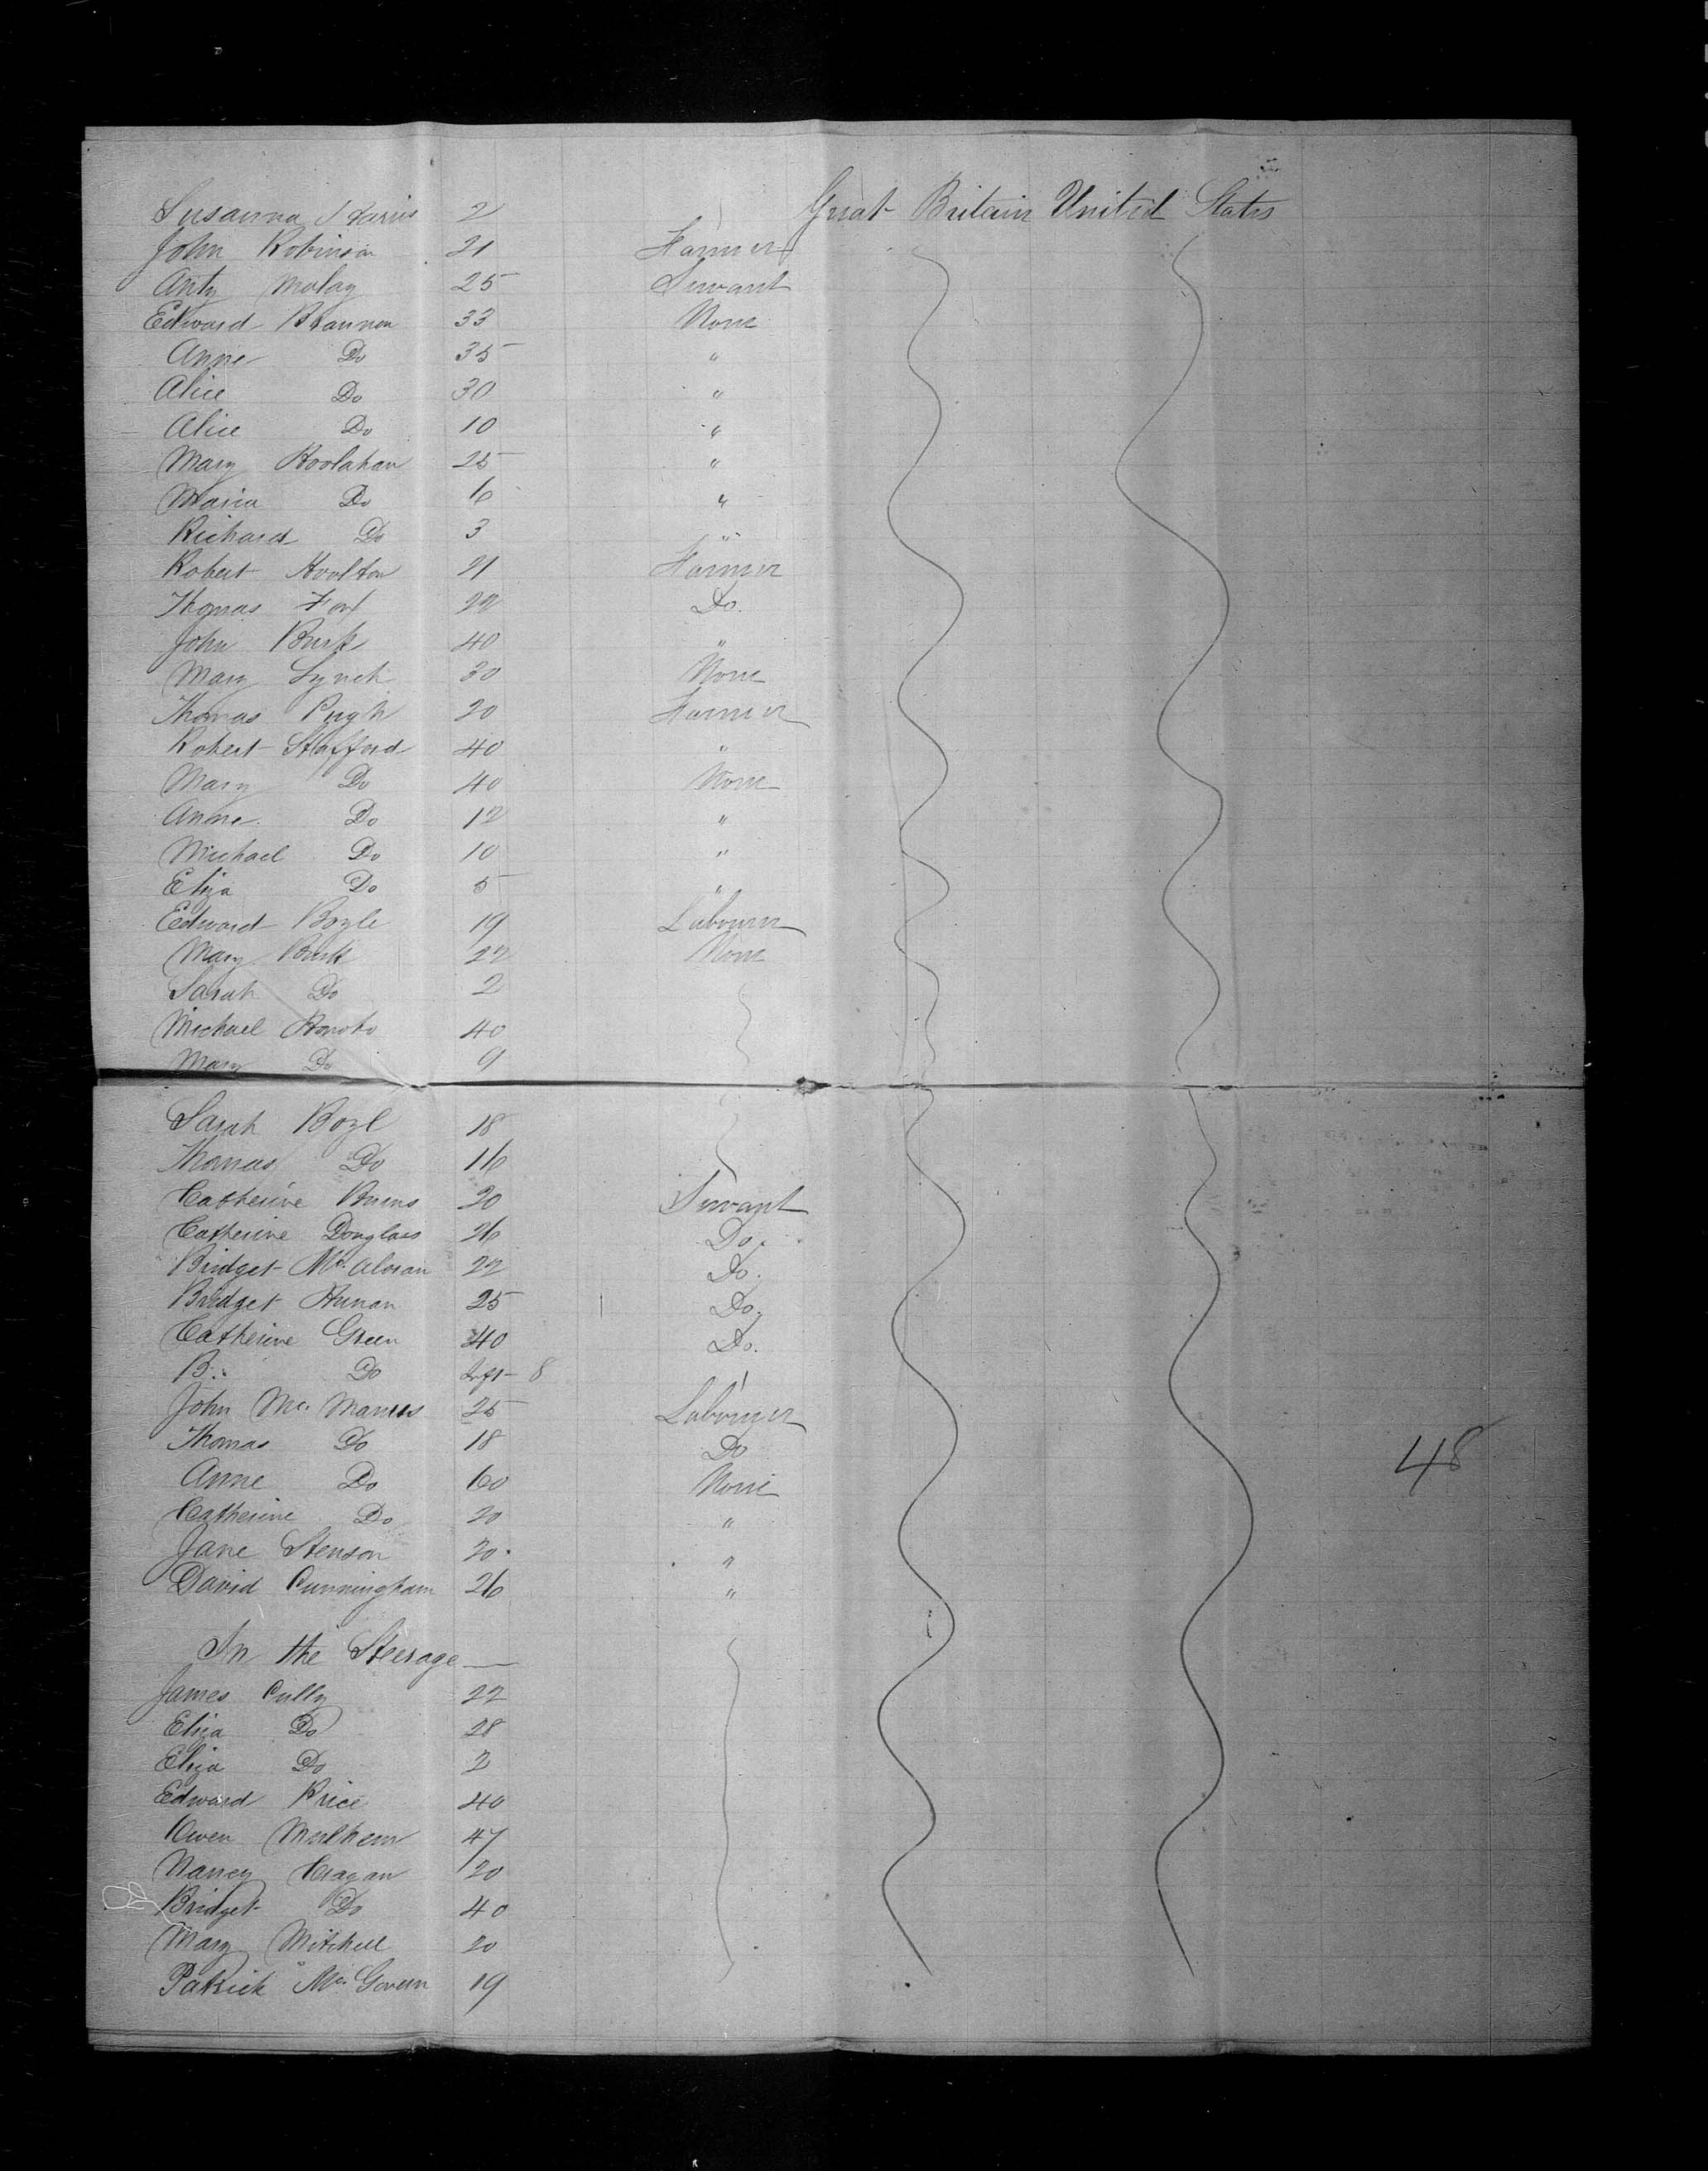 Susanna Harris 2 Great Britain United States
John Robinson 21 Farmer
Anty Molay 25 Servant
Edward Brannon 33 None
Anne Do 35 "
Alice Do 30 "
Alice Do 10 "
Mary Hoolahan 25 "
Maria Do 6 "
Richard Do 3 "
Robert Hoolton 21 Farmer
Thomas Fox 22 Do.
John Burk 40 "
Mary Lynch 30 None
Thomas Pugh 20 Farmer
Robert Stafford 40 "
Mary Do 40 None
Anne Do 12 "
Michael Do 10 "
Eliza Do 5 "
Edward Boyle 19 Labourer
Mary Burk 22 None
Sarah Do 2
Michael 40
Mary Do 9
Sarah Boyl 18
Thomas Do 16
Catherine Burns 20 Servant
Catherine Douglass 26 Do.
Bridget Mc. Aloran 22 Do.
Bridget Hunan 25 Do.
Catherine Green 40 Do.
B.. Do Inft 8
John Mc. Manus 25 Labourer
Thomas Do 18 Do
48
Anne Do 60 None
Catherine Do 20 "
Jane Stenson 20. "
David Cunningham 26 "
In the Steerage
James Cully 22
Eliza Do 28
Eliza Do 2
Edward Price 40
Owen Mulhern 47
Nancy Cragan 20
Bridget Do 40
Mary Mitchell 20
Patrick Mc. Govern 19